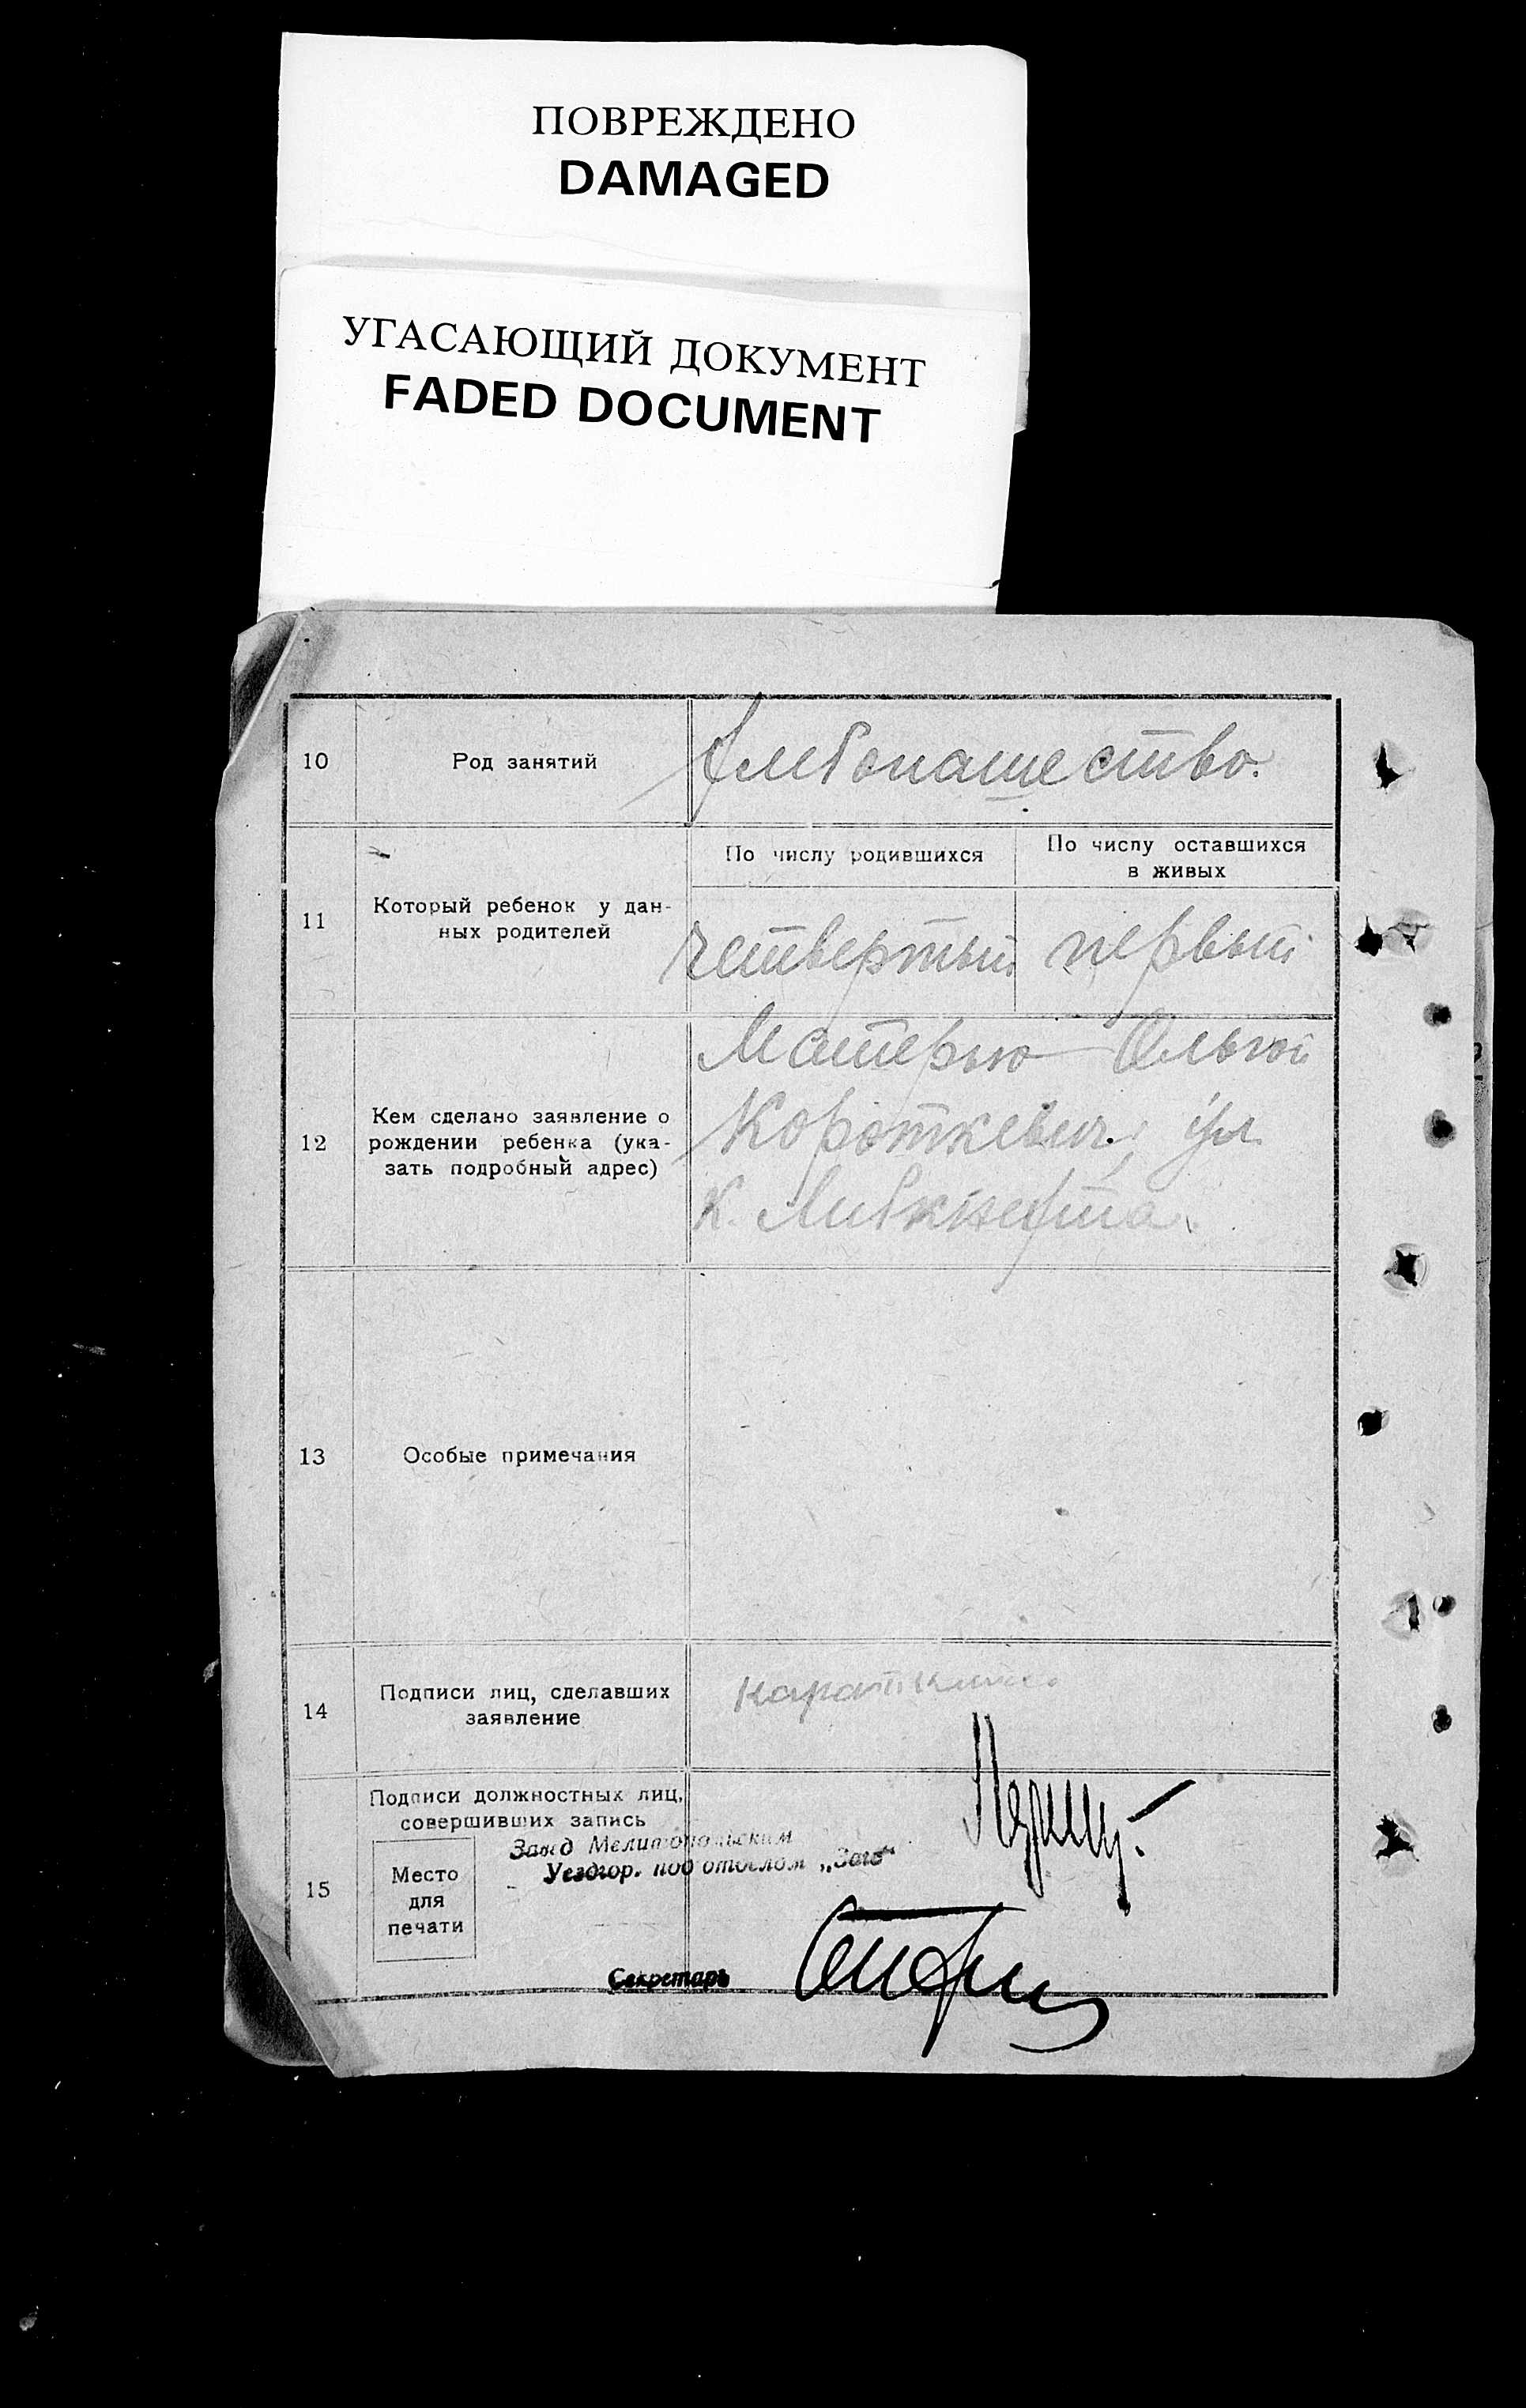 ПОВРЕЖДЕНО
DAMAGED
УГАСАЮЩИЙ ДОКУМЕНТ
FADED DOCUMENT
10
Род занятий
Хлебопашество.
11
Который ребенок у дан-
ных родителей
По числу родившихся
По числу оставшихся
в живых
четвертый
первый
12
Кем сделано заявление о
рождении ребенка (ука-
зать подробный адрес)
Матерью Ольгой
Короткевич, ул.
К. Либкнехта.
13
Особые примечания
14
Подписи лиц, сделавших
заявление
15
Подписи должностных лиц,
совершивших запись
Место
для
печати
Завед Мелитопольским
Уездгор. под отделом „Загс“
Секретарь